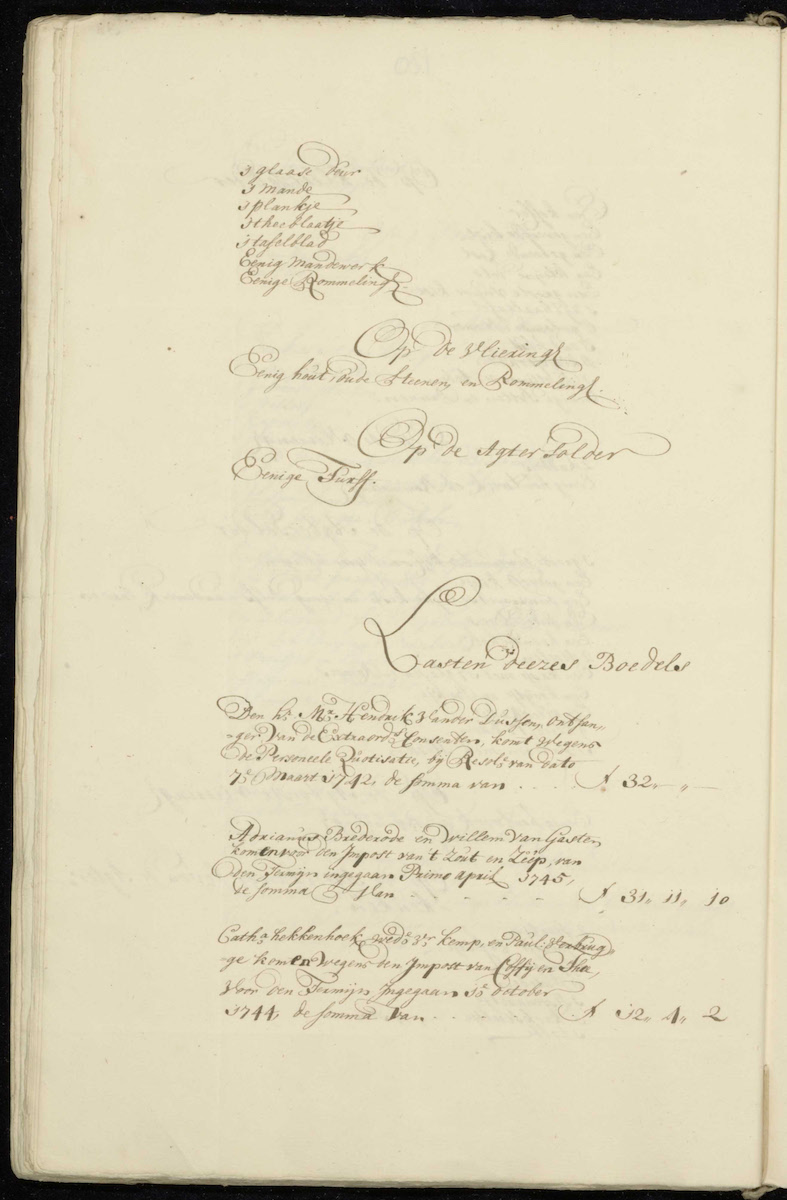 1 glaase deur
1 mande
1 plankje
1 theeblaatje
1 tafelblad
Eenig Mandewerk
Eenige Rommeling
Op de Vliering
Eenig hout, oude Steenen, en Rommeling.
Op de Agter Solder
Eenige Turff.
Lasten deezes Boedels
Den hr. Mr. Hendrik Vander Dussen, ontfan,
ger van de Extraordre Consenten, komt wegens
de Personeele Quotisatie, bij Resole van dato
7e Maart 1742, de somma van . . . . f 32,, — ,, —
Adrianus Brederode en Willem van Gasten
komen voor den Impost van 't Zout en Zeep, van
den Termijn ingegaan Primo april 1745,
de somma Van - - - - - - f 31,, 11,, 10
Catha. hekkenhoek, wede. Kemp, en Paul: Verbrug
ge komen wegens den Impost van Coffij en Thee,
Voor den Termijn Ingegaan 1e October
1744, de somma van - - - - - f 12,, 4,, 2